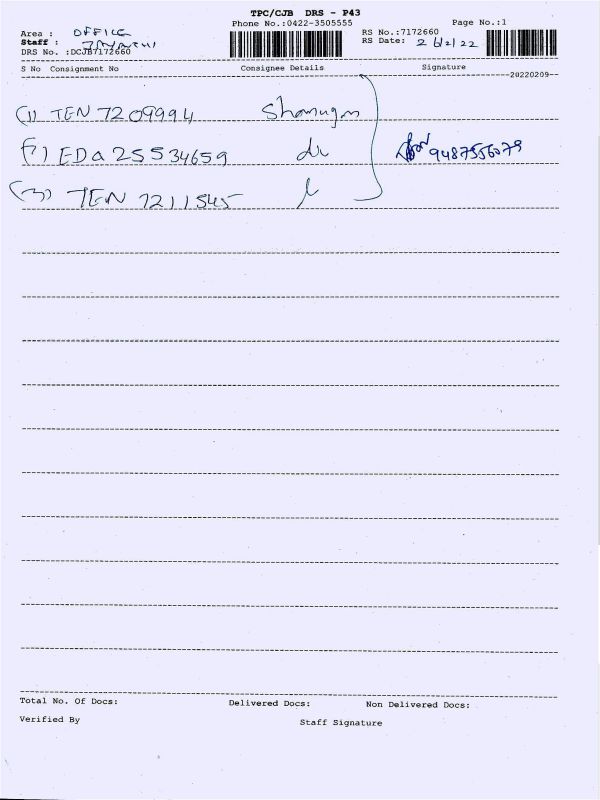 TPC/CJB DRS - P43
Phone No.:0422-3505555 Page No.:1
Area : OFFICE RS No.:7172660
Staff : RS Date: 26/2/22
DRS No. :DCJB7172660
S No Consignment No Consignee Details Signature
20220209
(1) TEN 7209994 Shanugm
(2) EDA 25534659 do 9487556079
(3) TEN 7211545
Total No. Of Docs: Delivered Docs: Non Delivered Docs:
Verified By Staff Signature